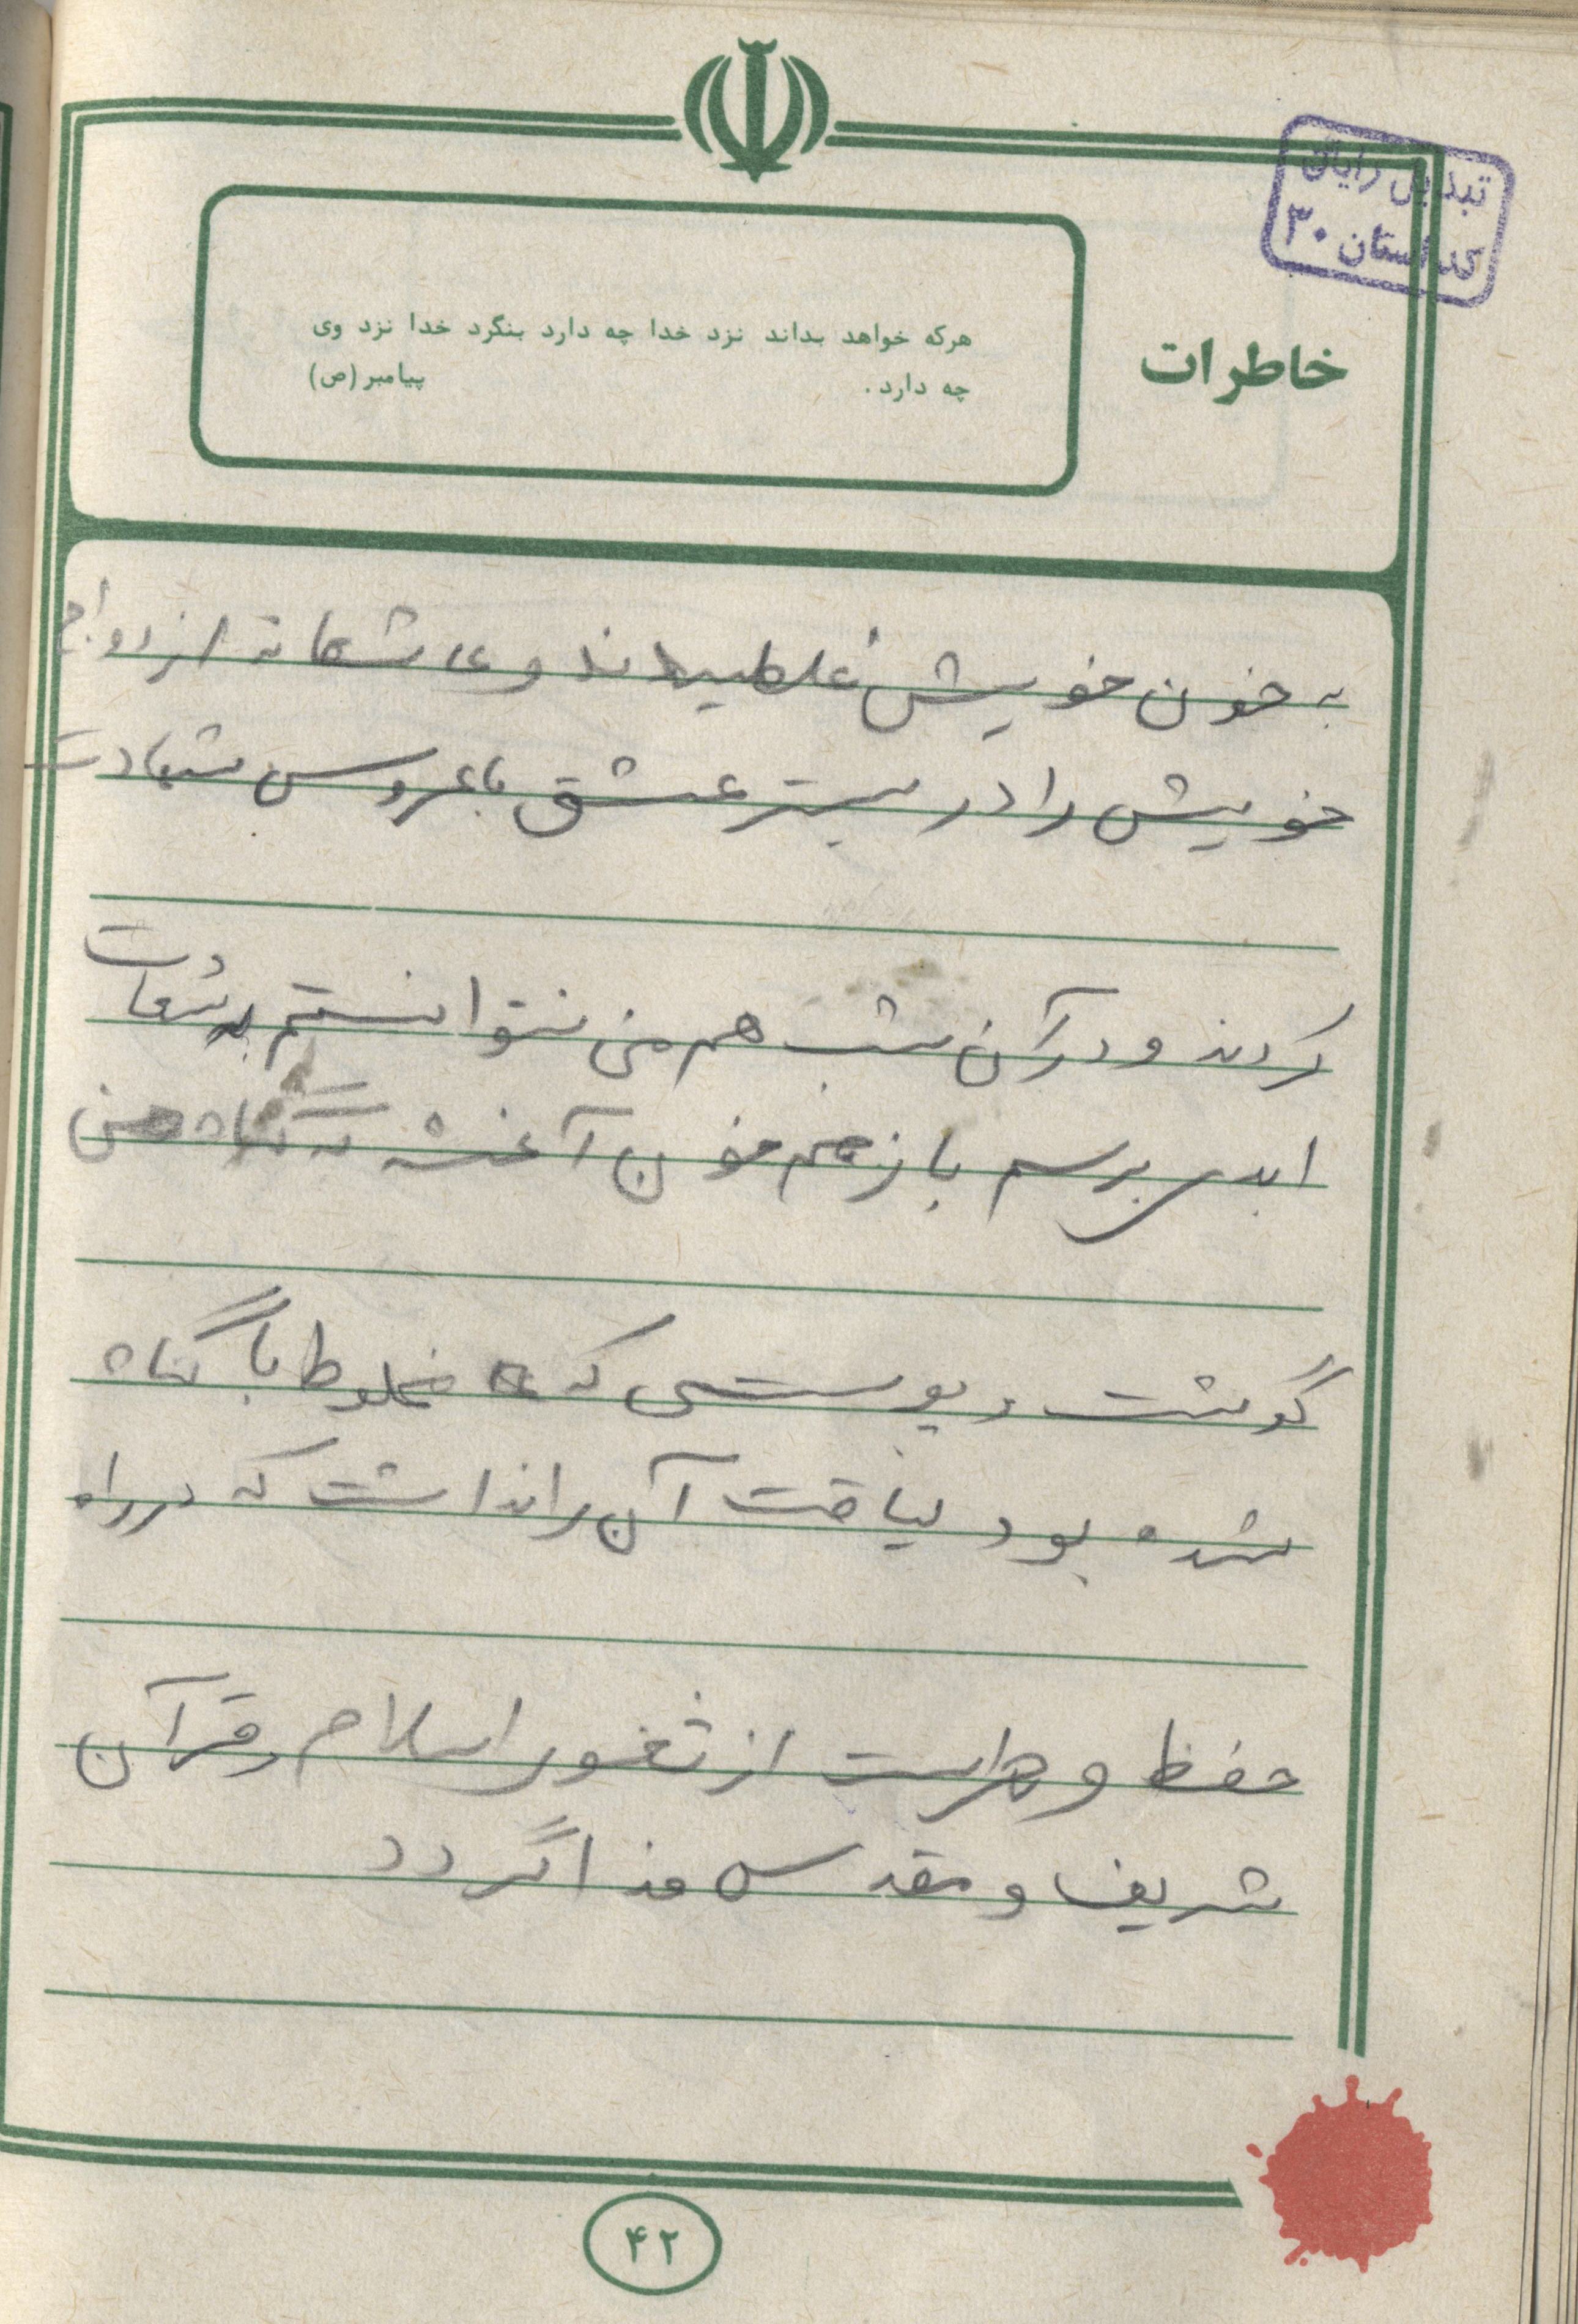 تبدیل رایان
کد استان ۳۰
خاطرات
هرکه خواهد بداند نزد خدا چه دارد بنگرد خدا نزد وی
چه دارد. پیامبر (ص)
به خون خویش غلطیداند و عاشقانه ازدواج
خویش را در بستر عشق با عروس شهادت
کردند و در آن شب هم من نتوانستم به سعادت
ابدی برسم باز هم خون آغشته به گناه من
گوشت و پوستی که مخلوط با گناه
شده بود لیاقت آن را نداشت که در راه
حفظ و حراست از ثغور اسلام و قرآن
شریف و مقدس فدا گردد
۴۲